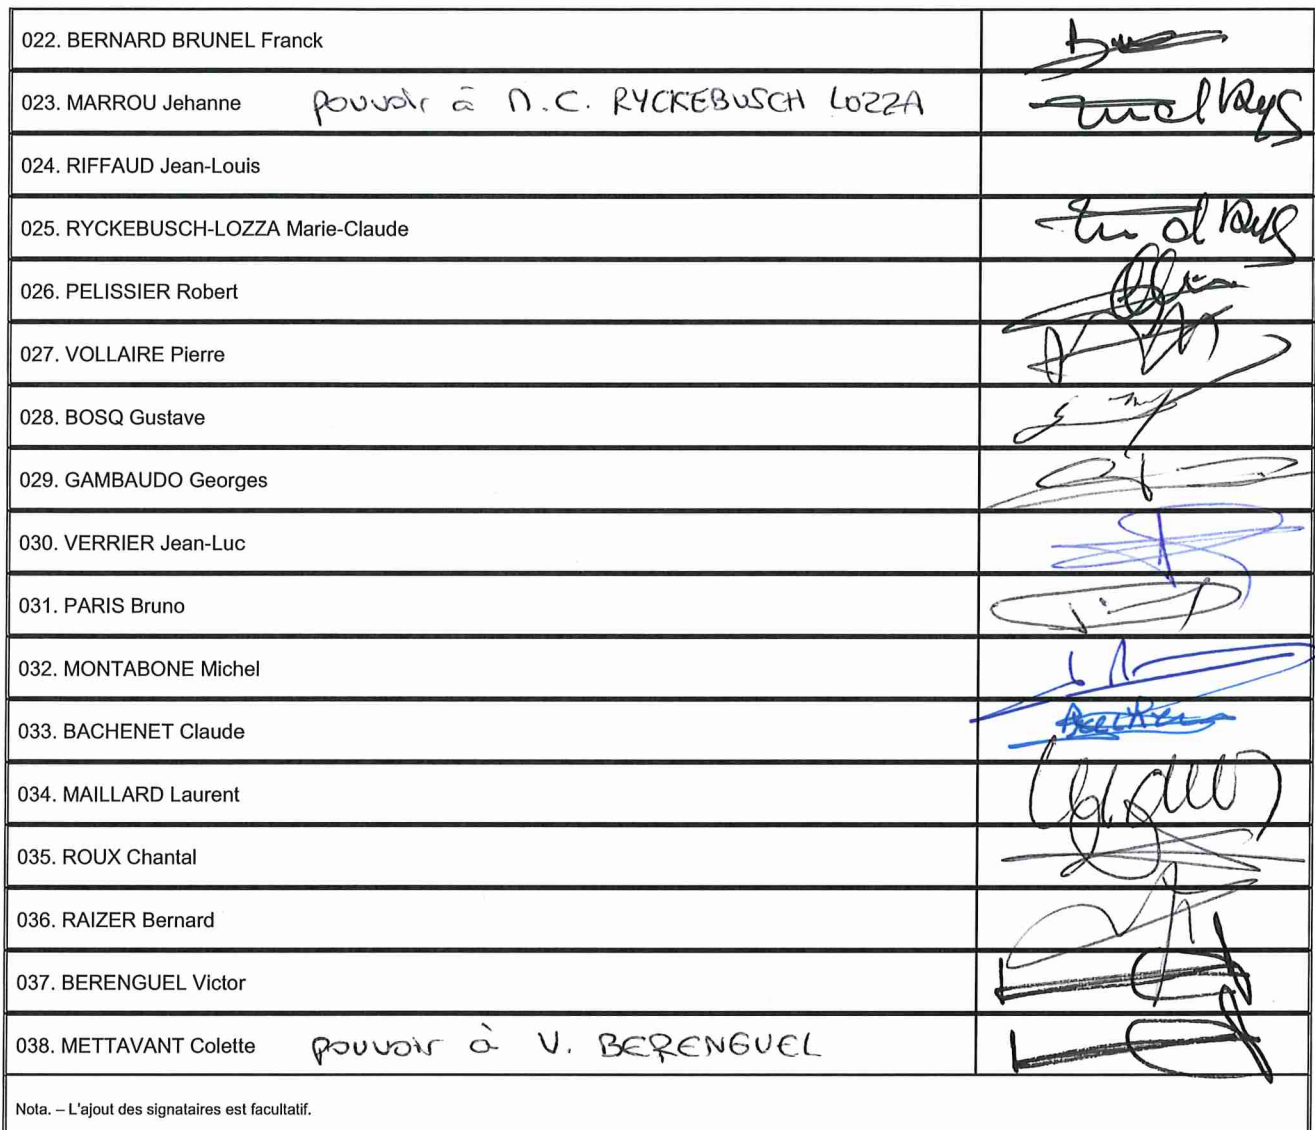 022. BERNARD BRUNEL Franck
023. MARROU Jehanne pouvoir à M.C. RYCKEBUSCH LOZZA
024. RIFFAUD Jean-Louis
025. RYCKEBUSCH-LOZZA Marie-Claude
026. PELISSIER Robert
027. VOLLAIRE Pierre
028. BOSQ Gustave
029. GAMBAUDO Georges
030. VERRIER Jean-Luc
031. PARIS Bruno
032. MONTABONE Michel
033. BACHENET Claude
034. MAILLARD Laurent
035. ROUX Chantal
036. RAIZER Bernard
037. BERENGUEL Victor
038. METTAVANT Colette pouvoir à V. BERENGUEL
Nota. – L'ajout des signataires est facultatif.